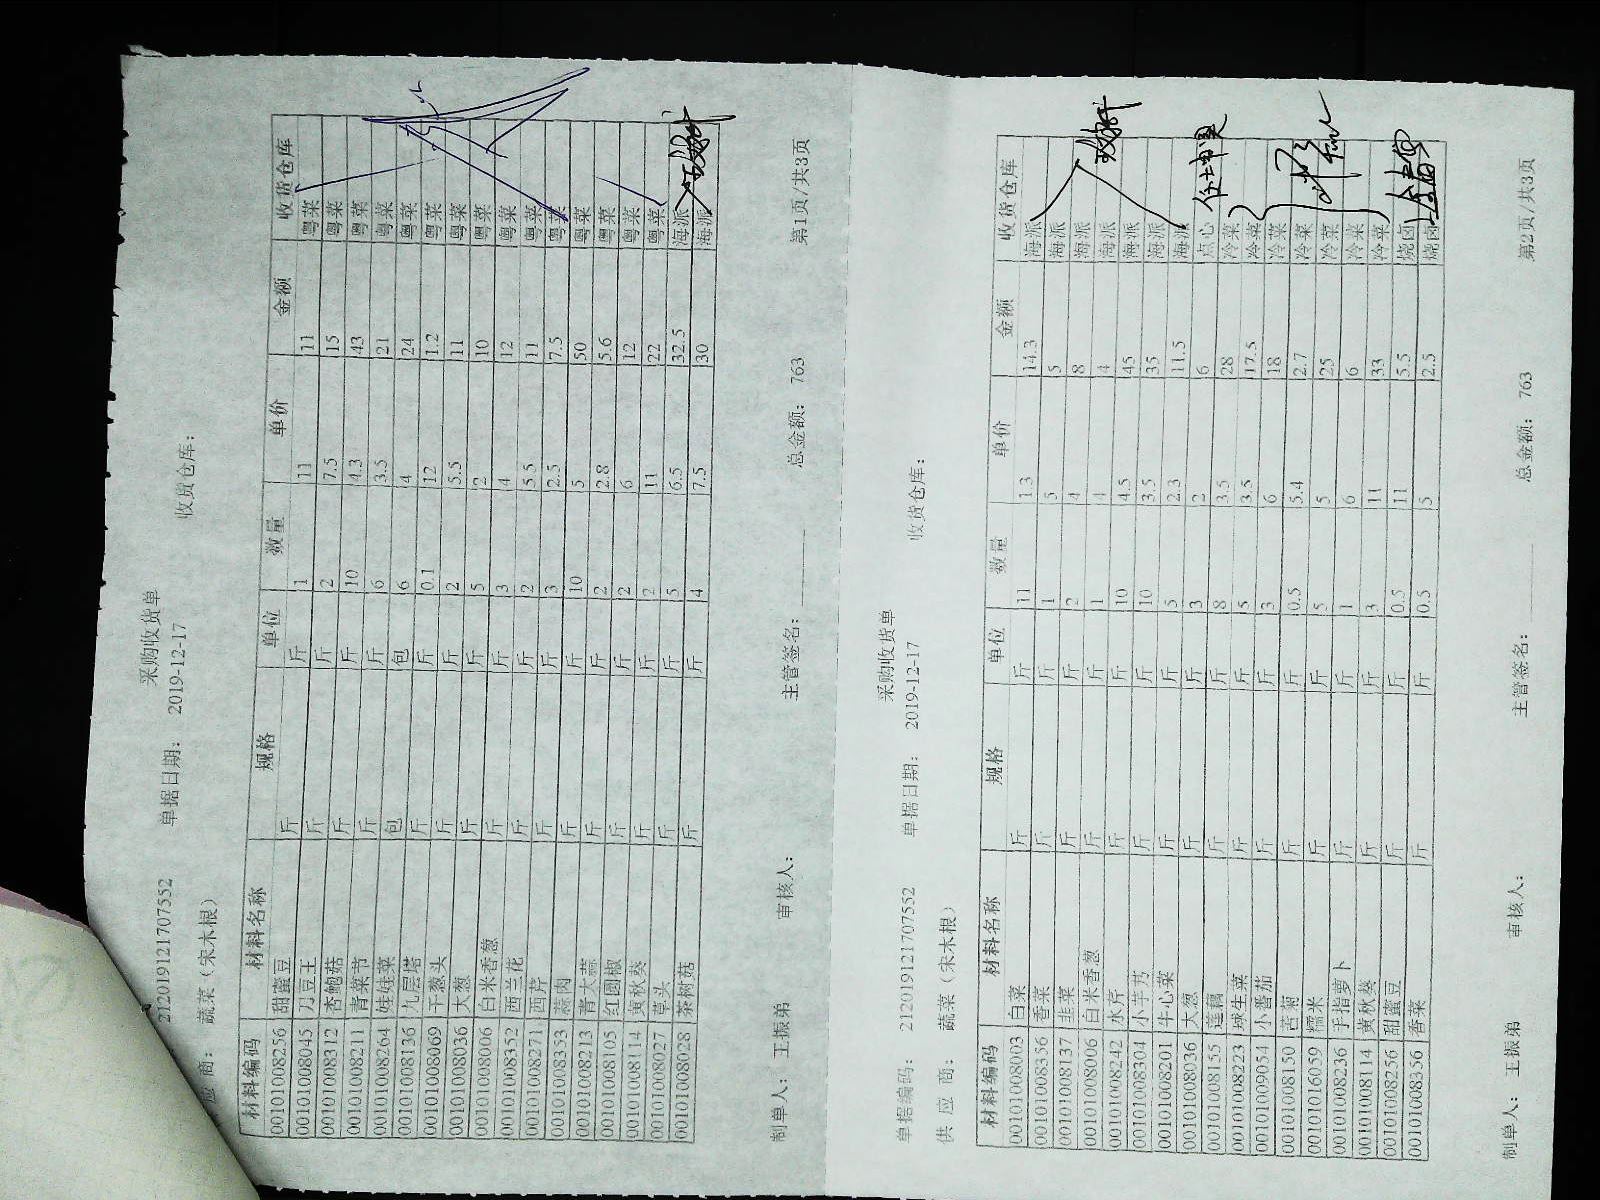 采购收货单
212019121707552 单据日期: 2019-12-17 收货仓库:
应 商: 蔬菜（宋木根）
材料编码 材料名称 规格 单位 数量 单价 金额 收货仓库
00101008256 甜蜜豆 斤 斤 1 11 11 粤菜
00101008045 刀豆王 斤 斤 2 7.5 15 粤菜
00101008312 杏鲍菇 斤 斤 10 4.3 43 粤菜
00101008211 青菜节 斤 斤 6 3.5 21 粤菜
00101008264 娃娃菜 包 包 6 4 24 粤菜
00101008136 九层塔 斤 斤 0.1 12 1.2 粤菜
00101008069 干葱头 斤 斤 2 5.5 11 粤菜
00101008036 大葱 斤 斤 5 2 10 粤菜
00101008006 白米香葱 斤 斤 3 4 12 粤菜
00101008352 西兰花 斤 斤 2 5.5 11 粤菜
00101008271 西芹 斤 斤 3 2.5 7.5 粤菜
00101008353 蒜肉 斤 斤 10 5 50 粤菜
00101008213 青大蒜 斤 斤 2 2.8 5.6 粤菜
00101008105 红圆椒 斤 斤 2 6 12 粤菜
00101008114 黄秋葵 斤 斤 2 11 22 粤菜
00101008027 草头 斤 斤 5 6.5 32.5 海派
00101008028 茶树菇 斤 斤 4 7.5 30 海派
制单人: 王振弟 审核人: 主管签名: 总金额: 763 第1页/共3页
采购收货单
单据编码: 212019121707552 单据日期: 2019-12-17 收货仓库:
供 应 商: 蔬菜（宋木根）
材料编码 材料名称 规格 单位 数量 单价 金额 收货仓库
00101008003 白菜 斤 斤 11 1.3 14.3 海派
00101008356 香菜 斤 斤 1 5 5 海派
00101008137 韭菜 斤 斤 2 4 8 海派
00101008006 白米香葱 斤 斤 1 4 4 海派
00101008242 水芹 斤 斤 10 4.5 45 海派
00101008304 小芋艿 斤 斤 10 3.5 35 海派
00101008201 牛心菜 斤 斤 5 2.3 11.5 海派
00101008036 大葱 斤 斤 3 2 6 点心
00101008155 莲藕 斤 斤 8 3.5 28 冷菜
00101008223 球生菜 斤 斤 5 3.5 17.5 冷菜
00101009054 小番茄 斤 斤 3 6 18 冷菜
00101008150 苦菊 斤 斤 0.5 5.4 2.7 冷菜
00101016059 糯米 斤 斤 5 5 25 冷菜
00101008236 手指萝卜 斤 斤 1 6 6 冷菜
00101008114 黄秋葵 斤 斤 3 11 33 冷菜
00101008256 甜蜜豆 斤 斤 0.5 11 5.5 烧卤
00101008356 香菜 斤 斤 0.5 5 2.5 烧卤
制单人: 王振弟 审核人: 主管签名: 总金额: 763 第2页/共3页